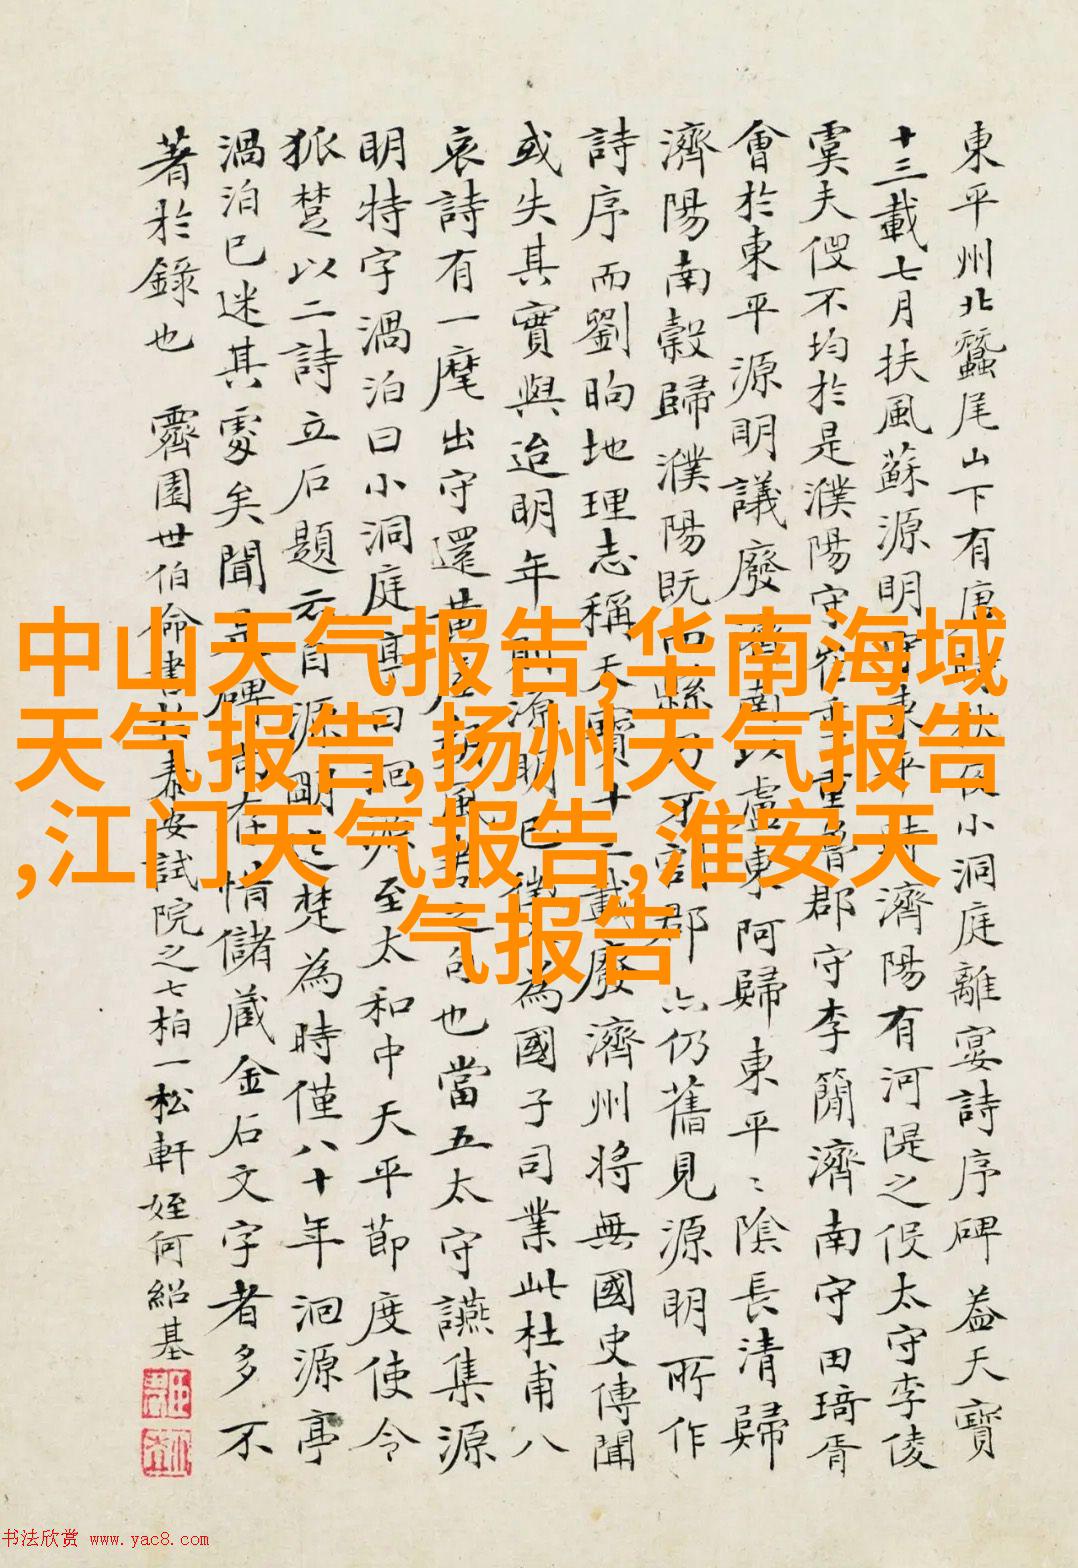 東平州北蠶尾山下有唐小洞庭離宴詩序碑 蓋天寶
十三載七月扶風蘇源明東平時濟陽有河隄之役太守李倰
虞夫役不均於是濮陽守崔魯郡守李蘭濟南守田琦胥
會於東平源明議廢濟南以盧東阿歸東平〻陰長清歸
濟陽南穀歸濮陽既縣郡亦仍舊見源明所作
詩序而劉昫地理志稱天寶十三載廢濟州將無國史傳聞
或失其實與迨明年則源明已徵為國子司業此杜甫八
哀詩有一麾出守還黃屋之句也當五太守讌集源
明特字渦泊曰小洞庭亭曰洄源至太和中天平節度使令
狐楚以二詩立石題云自源明之楚為時僅八十年洄源亭
渦泊已迷其處矣聞是碑尚在情儲蔵金石文字者多不
著於錄也 霽園世伯命書於泰安試院之七柏一松軒 姪何紹基
中山天气报告,华南海域
天气报告,扬州天气报告
,江门天气报告,淮安天
气报告
书法欣赏 www.yac8.com